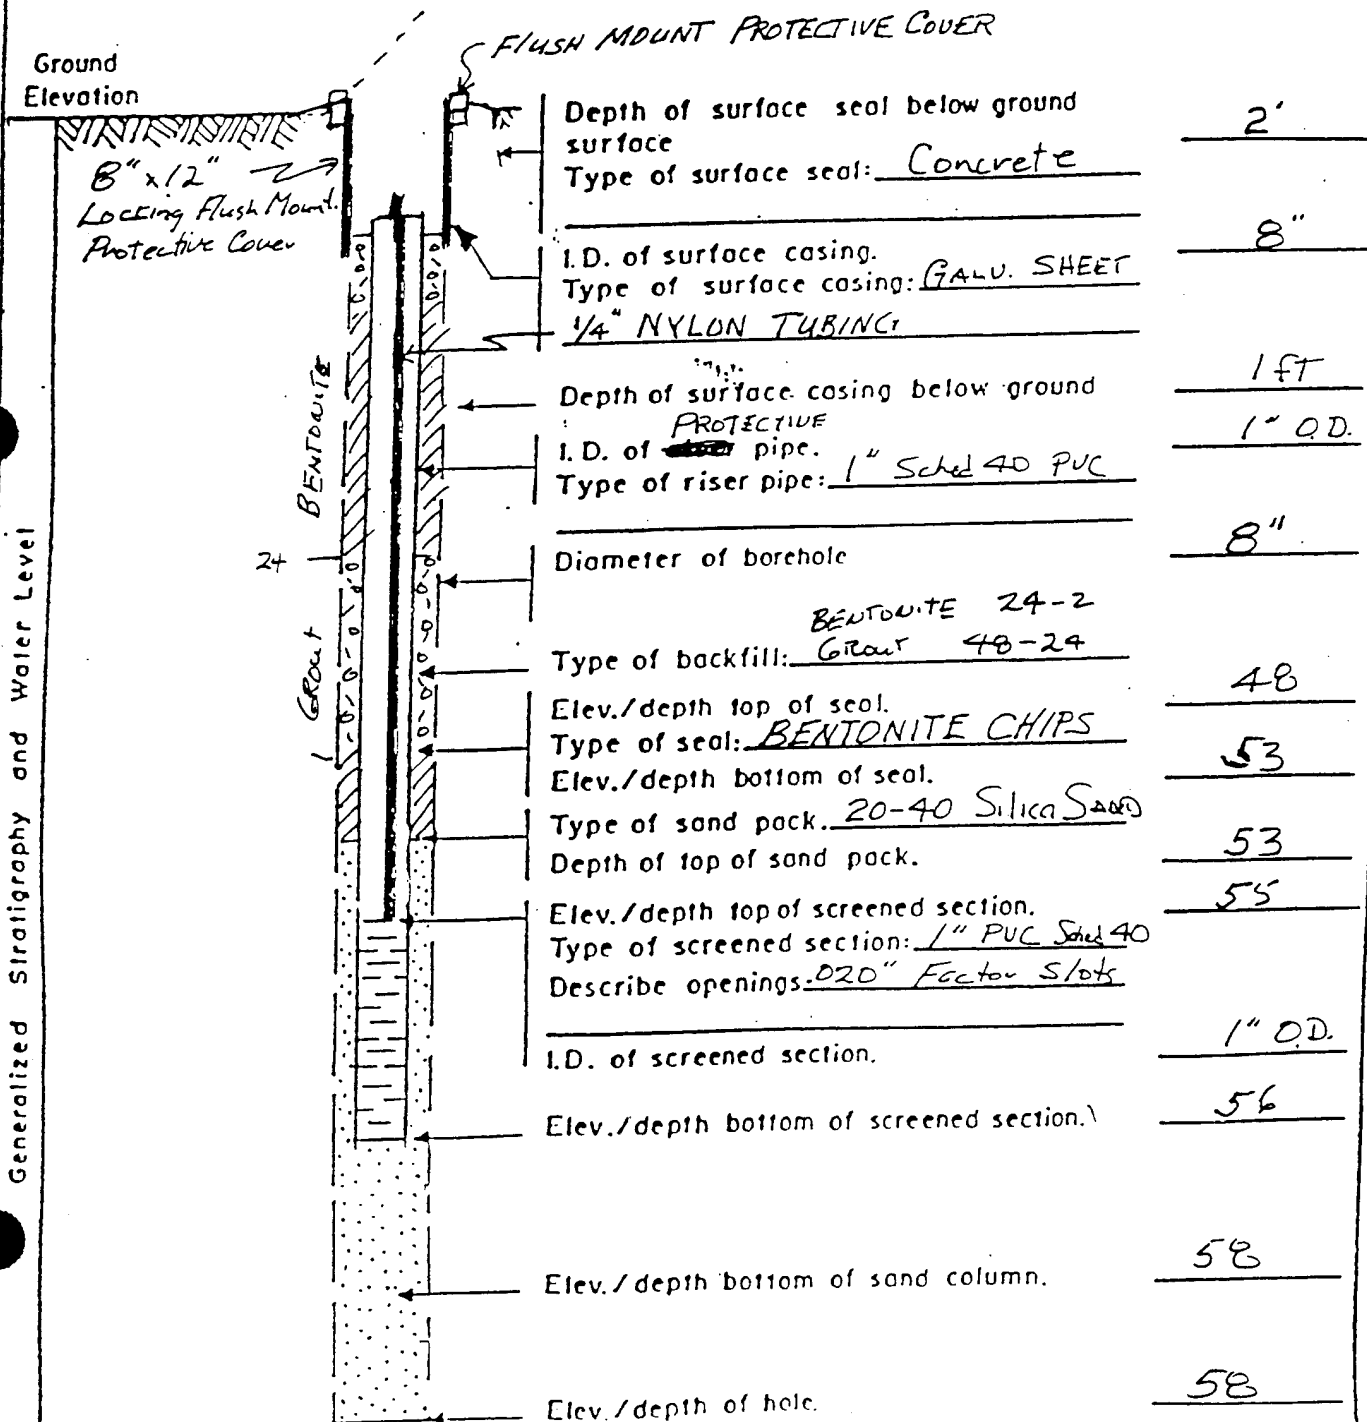 FLUSH MOUNT PROTECTIVE COVER
Ground
Elevation
8" x 12"
Locking Flush Mount
Protective Cover
Depth of surface seal below ground
surface
2'
Type of surface seal: Concrete
I.D. of surface casing.
8"
Type of surface casing: GALV. SHEET
1/4" NYLON TUBING
Depth of surface casing below ground
1 FT
PROTECTIVE
I.D. of pipe.
1" O.D.
Type of riser pipe: 1" Sched 40 PVC
Diameter of borehole
8"
BENTONITE
24
GROUT
BENTONITE 24-2
Type of backfill: Grout 48-24
Elev./depth top of seal.
48
Type of seal: BENTONITE CHIPS
Elev./depth bottom of seal.
53
Type of sand pack. 20-40 Silica SAND
Depth of top of sand pack.
53
Elev./depth top of screened section.
55
Type of screened section: 1" PVC Sched 40
Describe openings: .020" Factor Slots
I.D. of screened section.
1" O.D.
Elev./depth bottom of screened section.
56
Elev./depth bottom of sand column.
58
Elev./depth of hole.
58
Generalized Stratigraphy and Water Level